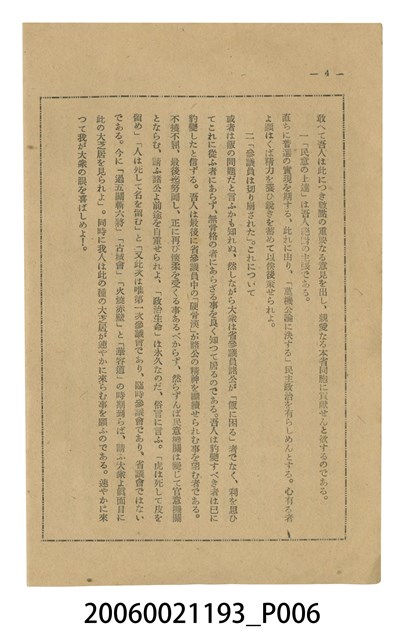 — 4 —
敢へて吾人は此につき數點の重要なる意見を出し、親愛なる本省同胞に貢獻せんと欲するのである。
一「民意の上達」は吾人の主張である。
直ちに普選の實現を期する。此れに由り、「萬機公論に決する」民主政治を有らしめんとする。心有る者
よ願はくば精力を養ひ鋭きを蓄めて以後に策せられよ。
二「參議員は切り崩された」これについて
或者は飯の問題だと言ふかも知れぬ、然しながら大衆は省參議員諸公が「飯に困る」者でなく、利を思ひ
てこれに從ふ者にあらず、無骨格の者にあらざる事を良く知つて居るのである。吾人は豹變すべき者は已に
豹變したと信ずる。吾人は最後に省參議員中の「硬骨漢」が諸公の精神を繼續せられむ事を望む者である。
不撓不屈、最後迄努鬪し、正に再び懐柔を受くる事あるべからず、然らずんば民意機關は變じて官意機關
とならむ、請ふ諸公よ前途を自重せられよ、「政治生命」は永久なのだ、俗言に言ふ。「虎は死して皮を
留め」「人は死して名を留む」と「又此次は唯第一次參議會であり、臨時參議會であり、省議會ではない
である。今に「過五關斬六將」「古城會」「火燒赤壁」と「華容道」の時期到らば、請ふ大衆よ眞面目に
此の大芝居を見られよ」。同時に我人は此の種の大芝居が速やかに來らむ事を願ふのである。速やかに來
つて我が大衆の眼を喜ばしめよ！。
20060021193_P006